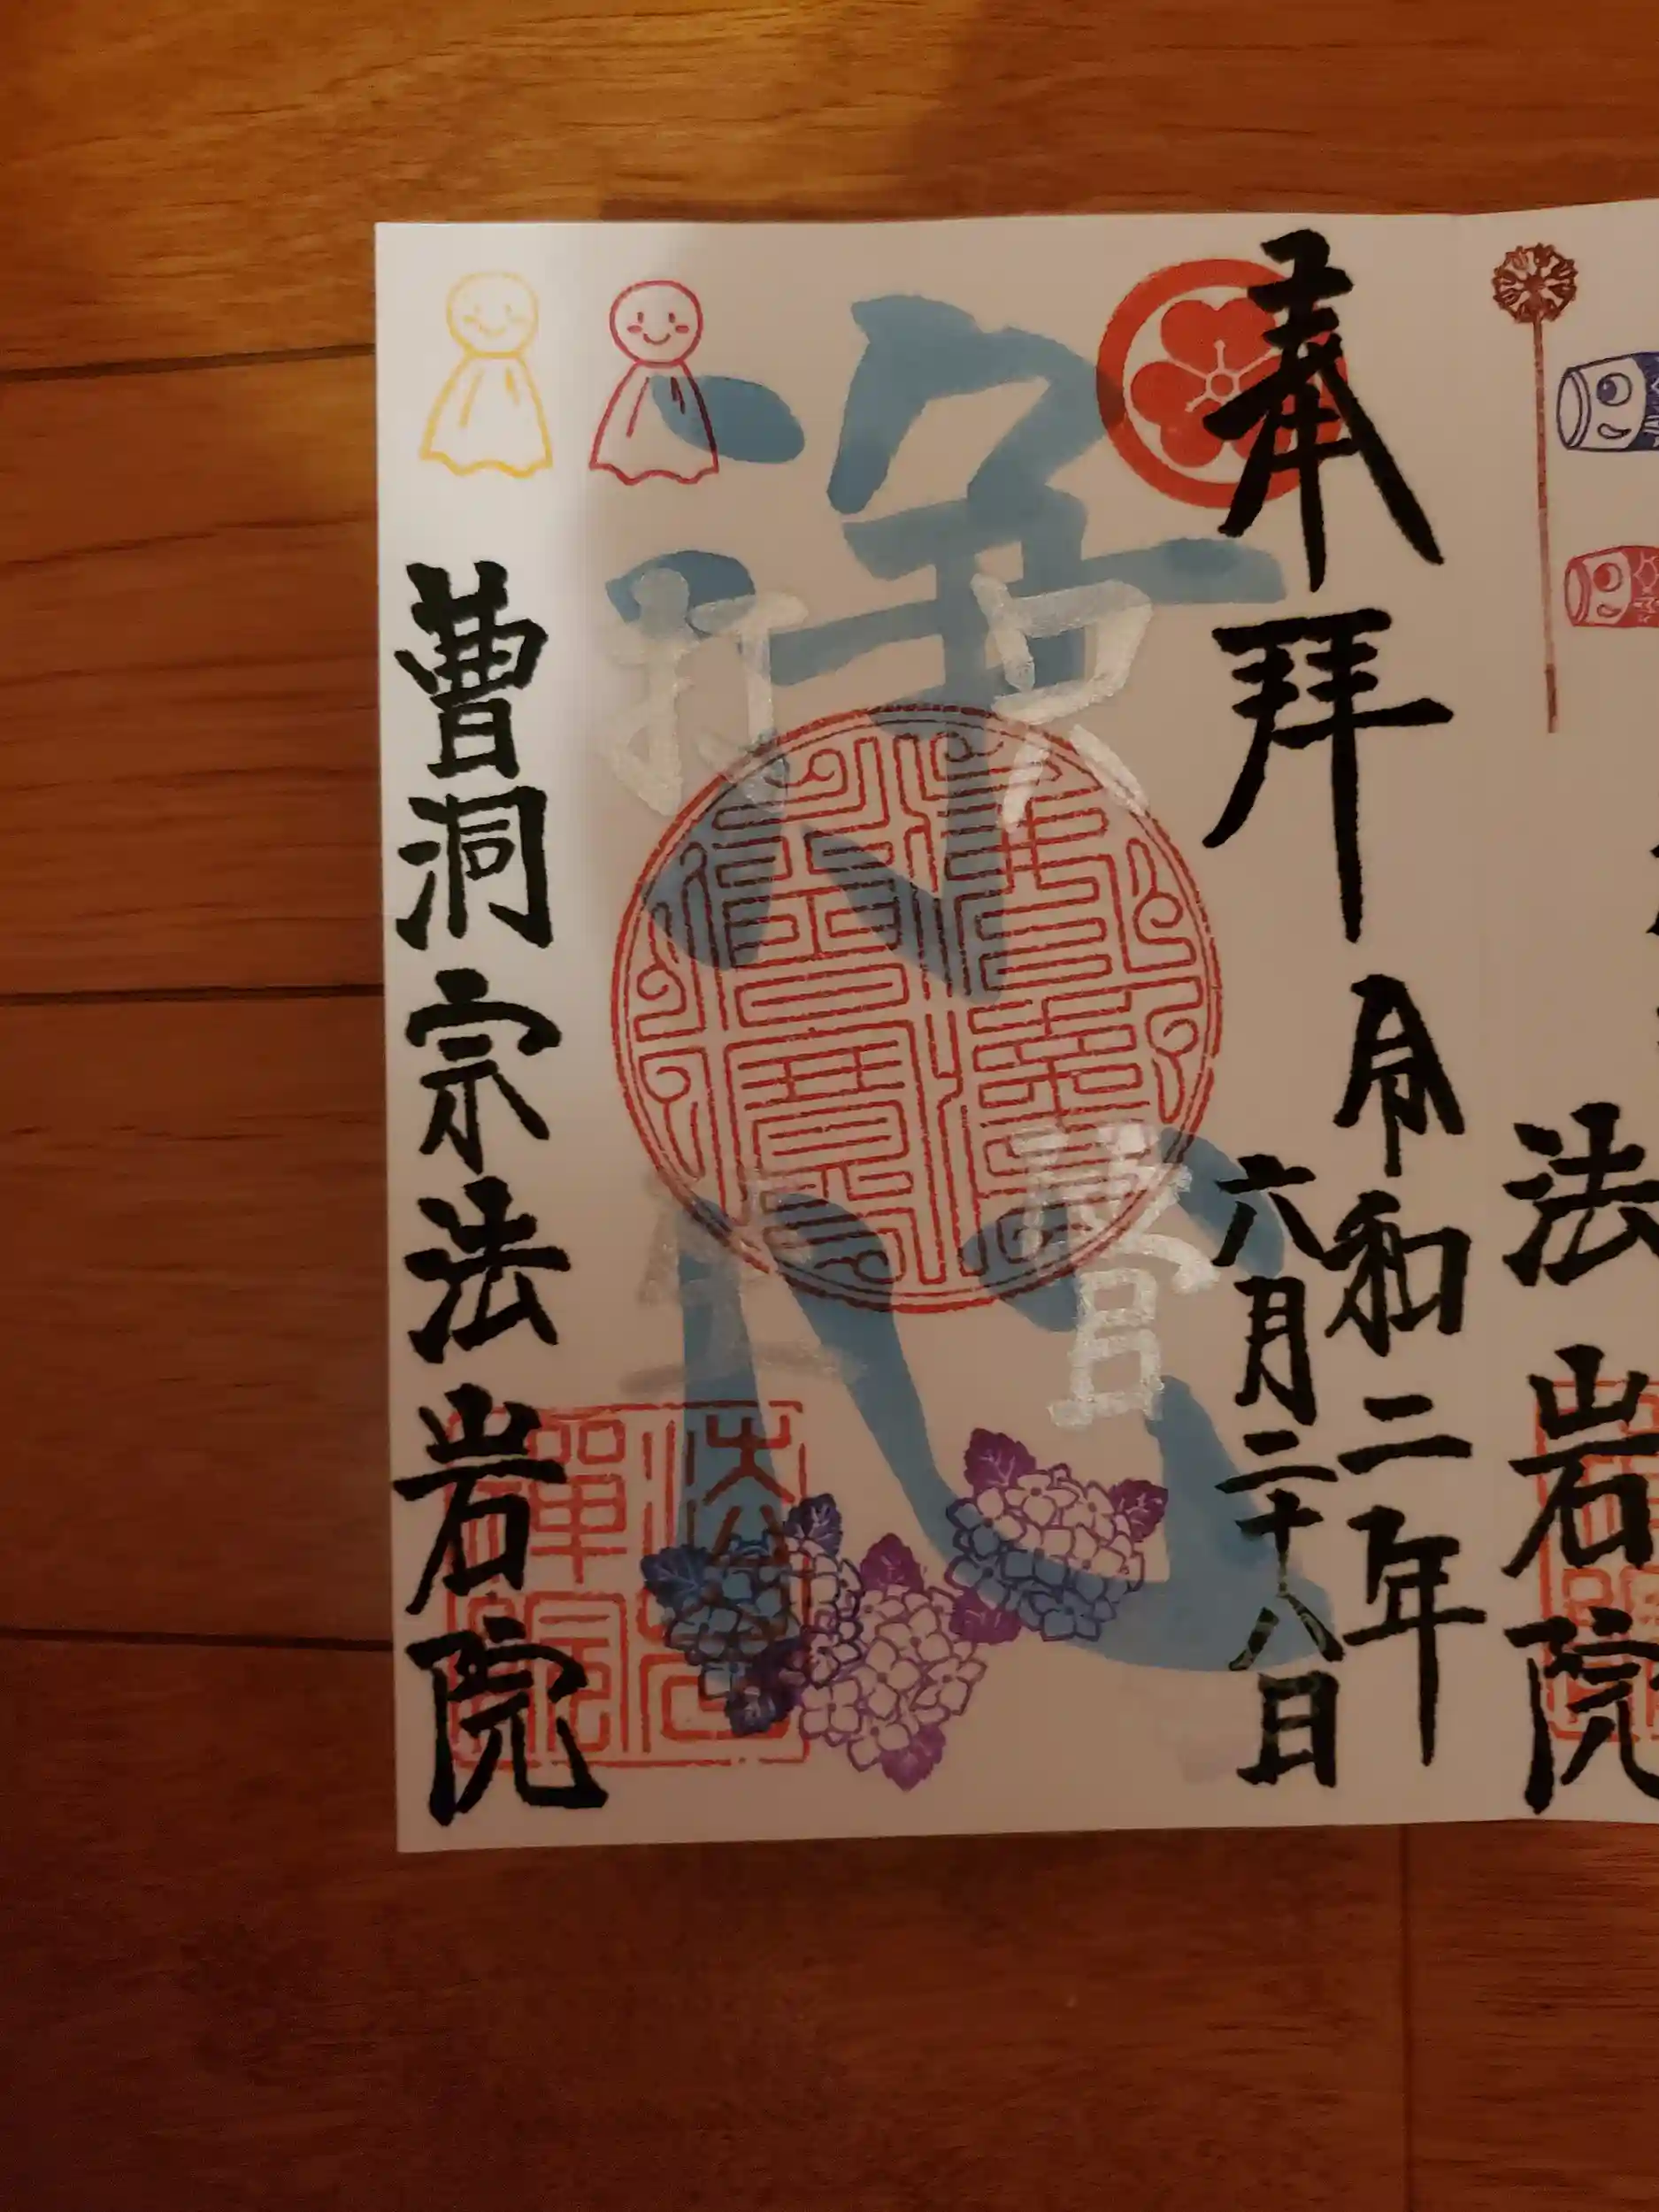 奉拝
令和二年
六月二十八日
浄心
只管
打坐
曹洞宗法岩院
法岩院